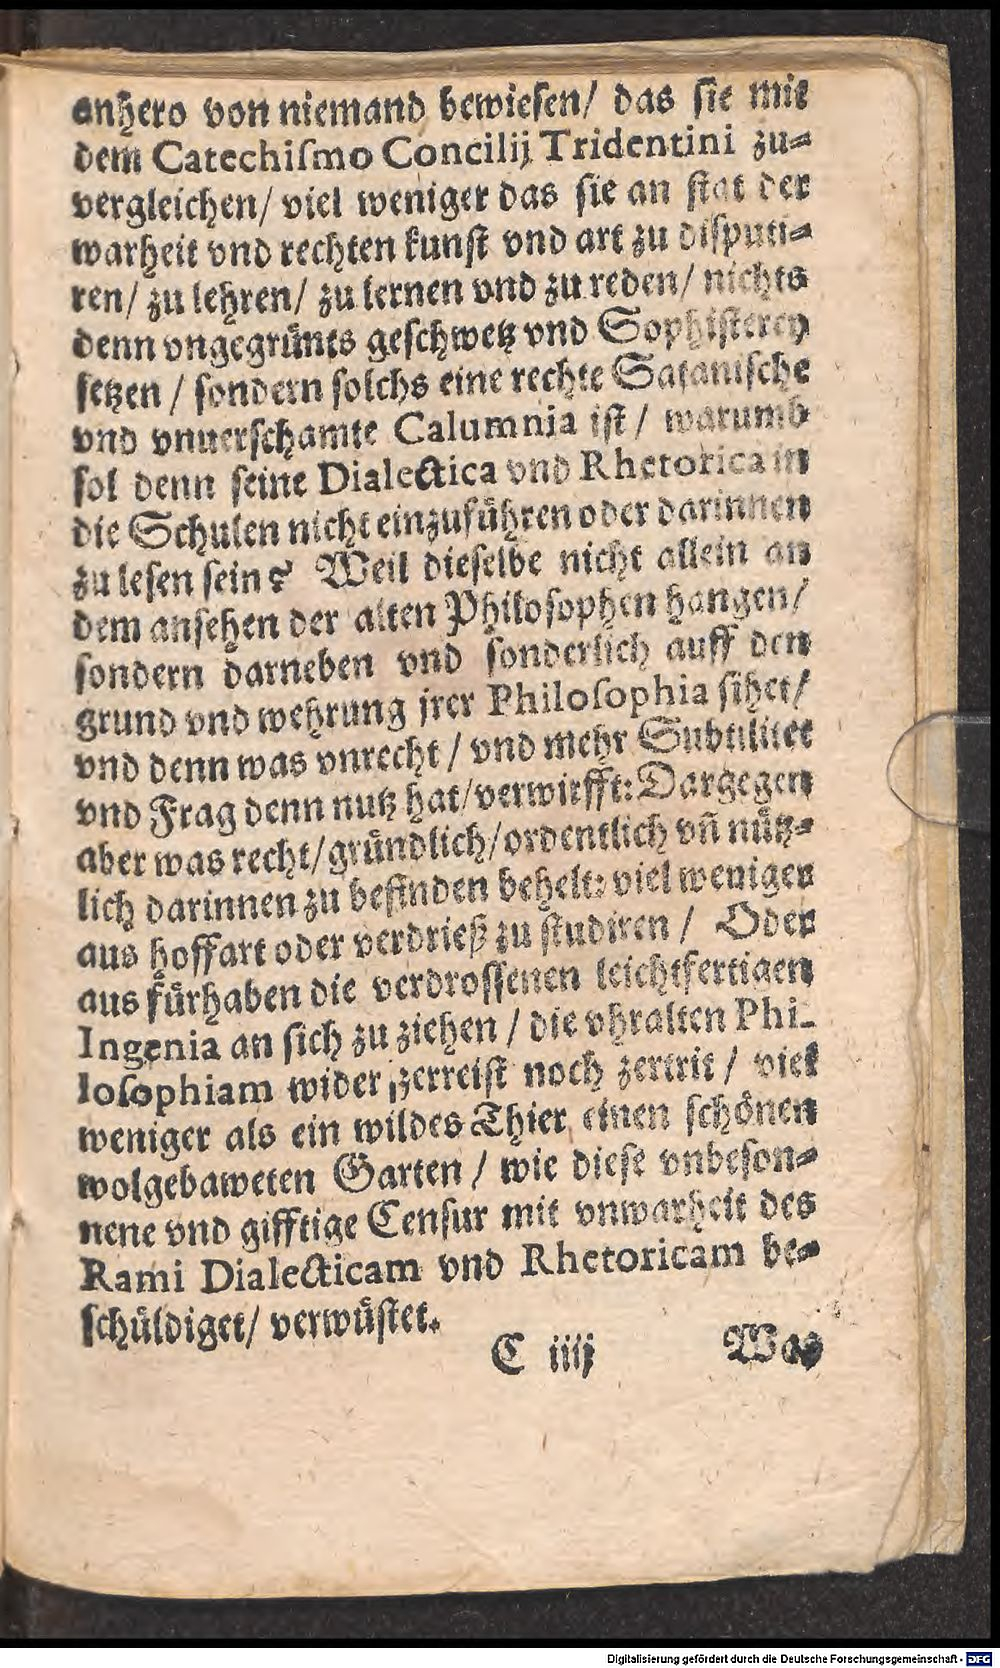 anhero von niemand bewiesen/ das sie mit
dem Catechiſmo Concilij Tridentini zu⸗
vergleichen/ viel weniger das ſie an ſtat der
warheit vnd rechten kunſt vnd art zu diſputi⸗
ren/ zu lehren/ zu lernen vnd zu reden/ nichts
denn vngegruͤnts geſchwetz vnd Sophiſterey
ſetzen / ſondern ſolchs eine rechte Sataniſche
vnd vnuerſchamte Calumnia iſt/ warumb
ſol denn ſeine Dialectica vnd Rhetorica in
die Schulen nicht einzufuͤhren oder darinnen
zu leſen ſein? Weil dieſelbe nicht allein an
dem anſehen der alten Philoſophen hangen/
ſondern darneben vnd ſonderlich auff den
grund vnd wehrung jrer Philoſophia ſihet/
vnd denn was vnrecht / vnd mehr Subtilitet
vnd Frag denn nutz hat/ verwirfft: Dargegen
aber was recht/ gruͤndlich/ ordentlich vñ nuͤtz⸗
lich darinnen zu befinden behelt: viel weniger
aus hoffart oder verdrieß zu ſtudiren / Oder
aus fuͤrhaben die verdroſſenen leichtfertigen
Ingenia an ſich zu ziehen / die vhralten Phi-
loſophiam wider zerreiſt noch zertrit / viel
weniger als ein wildes Thier einen ſchoͤnen
wolgebaweten Garten / wie dieſe vnbeſon⸗
nene vnd gifftige Cenſur mit vnwarheit des
Rami Dialecticam vnd Rhetoricam be⸗
ſchuͤldiget/ verwuͤſtet.
C iiij Was
Digitalisierung gefördert durch die Deutsche Forschungsgemeinschaft - DFG